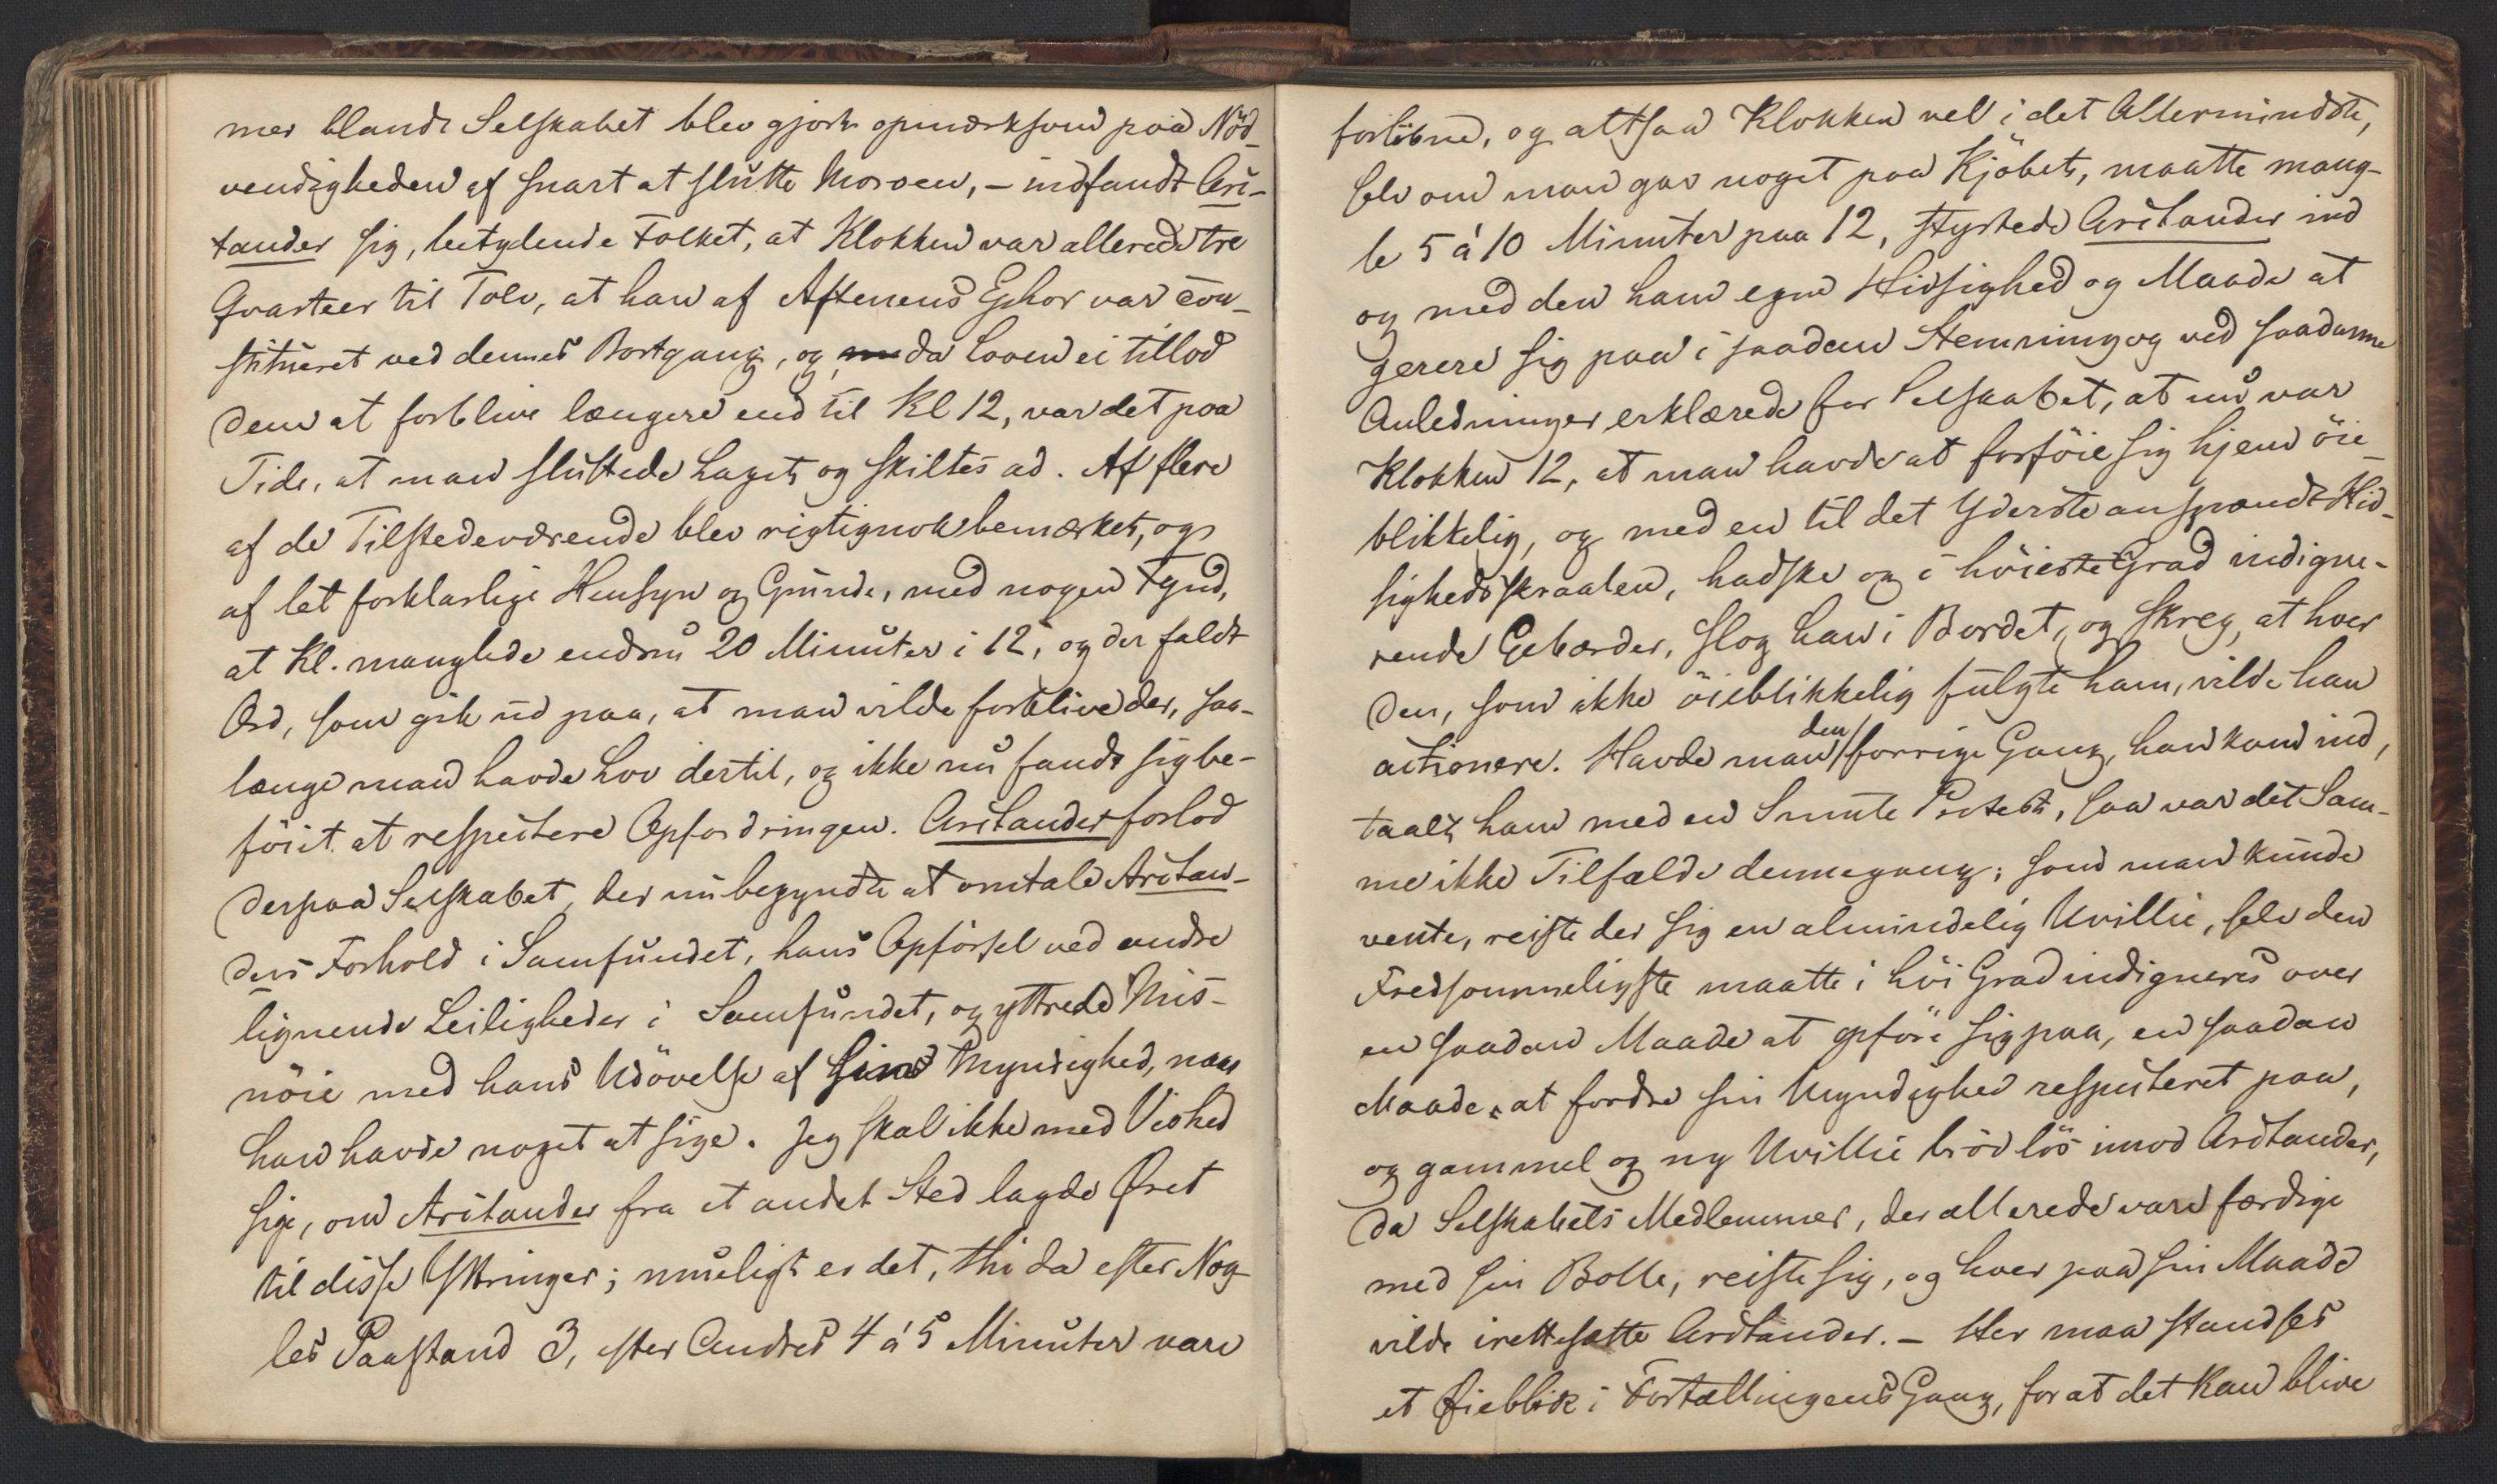 mer blandt Selskabet blev gjort opmærksom paa Nöd-
vendigheden af snart at slutte Moroen, – indfandt Ari-
tander sig, betydende Folket, at Klokken var allerede tre
Qvarteer til Tolv, at han af Aftenens Ephor var con-
stitueret ved dennes Bortgang, og da Loven ei tillod
dem at forblive længere end til Kl 12, var det paa
Tide, at man sluttede Laget og skiltes ad. Af flere
af de Tilstedeværende blev rigtignok bemærket, og
af let forklarlige Hensyn og Grunde, med nogen Fynd,
at Kl. manglede endnu 20 Minuter i 12, og der faldt
Ord, som gik ud paa, at man vilde forblive der, saa-
længe man havde Lov dertil, og ikke nu fandt sig be-
föiet at respectere Opfordringen. Aritander forlod
derpaa Selskabet, der nu begyndte at omtale Aritan-
ders Forhold i Samfundet, hans Opförsel ved andre
lignende Leiligheder i Samfundet, og yttrede Mis-
nöie med hans Udövelse af sin Myndighed, naar
han havde noget at sige. Jeg skal ikke med Vished
sige, om Aritander fra et andet Sted lagde Øret
til disse Yttringer; muligt er det, thi da efter Nog-
les Paastand 3, efter Andres 4 á 5 Minuter vare
forløbne, og altsaa Klokken vel i det Allermindste,
selv om man gav noget paa Kjöbet, maatte mang-
le 5 á 10 Minuter paa 12, styrtede Aritander ind
og med den ham egne Hidsighed og Maade at
gerere sig paa i saadan Stemning og ved saadanne
Anledninger, erklærede for Selskabet, at nu var
Klokken 12, at man havde at forföie sig hjem öie-
blikkelig, og med en til det Yderste anspændt Hid-
sighedsskraalen, hadske og i höieste Grad indigne-
rende Gebærder, slog han i Bordet, og skreg, at hver
den, som ikke öieblikkelig fulgte ham, vilde han
actionere. Havde man den forrige Gang, han kom ind,
taalt ham med en Smule Protest, saa var det Sam-
me ikke Tilfælde dennegang; som man kunde
vente, reiste der sig en almindelig Uvillie, selv den
Fredsommeligste maatte i höi Grad indigneres over
en saadan Maade at opföre sig paa, en saadan
Maade at fordre sin Myndighed respecteret paa,
og gammel og ny Uvillie bröd lös imod Aritander,
da Selskabets Medlemmer, der allerede vare færdige
med sin Bolle, reiste sig, og hver paa sin Maade
vilde irettesætte Aritander. – Her maa standses
et Øieblik i Fortællingens Gang, for at det kan blive